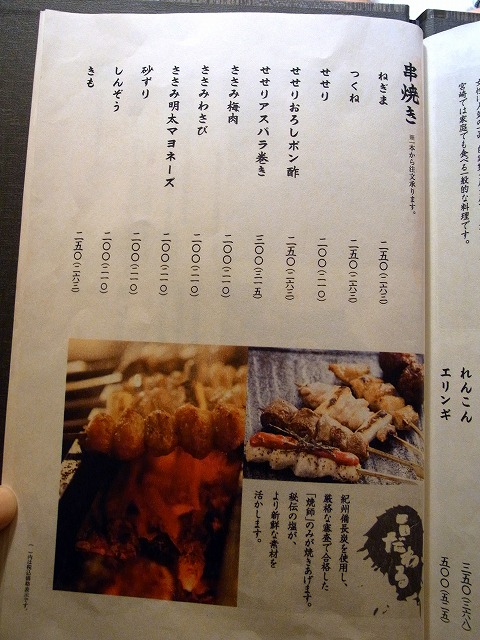 宮崎では家庭でも食べる一般的な料理です。
れんこん 三五〇(三六八)
エリンギ 五〇〇(五二五)
串焼き ※一本から注文承ります。
ねぎま 二五〇(二六三)
つくね 二五〇(二六三)
せせり 二〇〇(二一〇)
せせりおろしポン酢 二五〇(二六三)
せせりアスパラ巻き 三〇〇(三一五)
ささみ梅肉 二〇〇(二一〇)
ささみわさび 二〇〇(二一〇)
ささみ明太マヨネーズ 二〇〇(二一〇)
砂ずり 二〇〇(二一〇)
しんぞう 二〇〇(二一〇)
きも 二五〇(二六三)
こだわる
紀州備長炭を使用し、
厳格な審査で合格した
「焼師」のみが焼きあげます。
秘伝の塩が、
より新鮮な素材を
活かします。
( )内は税込価格表示です。